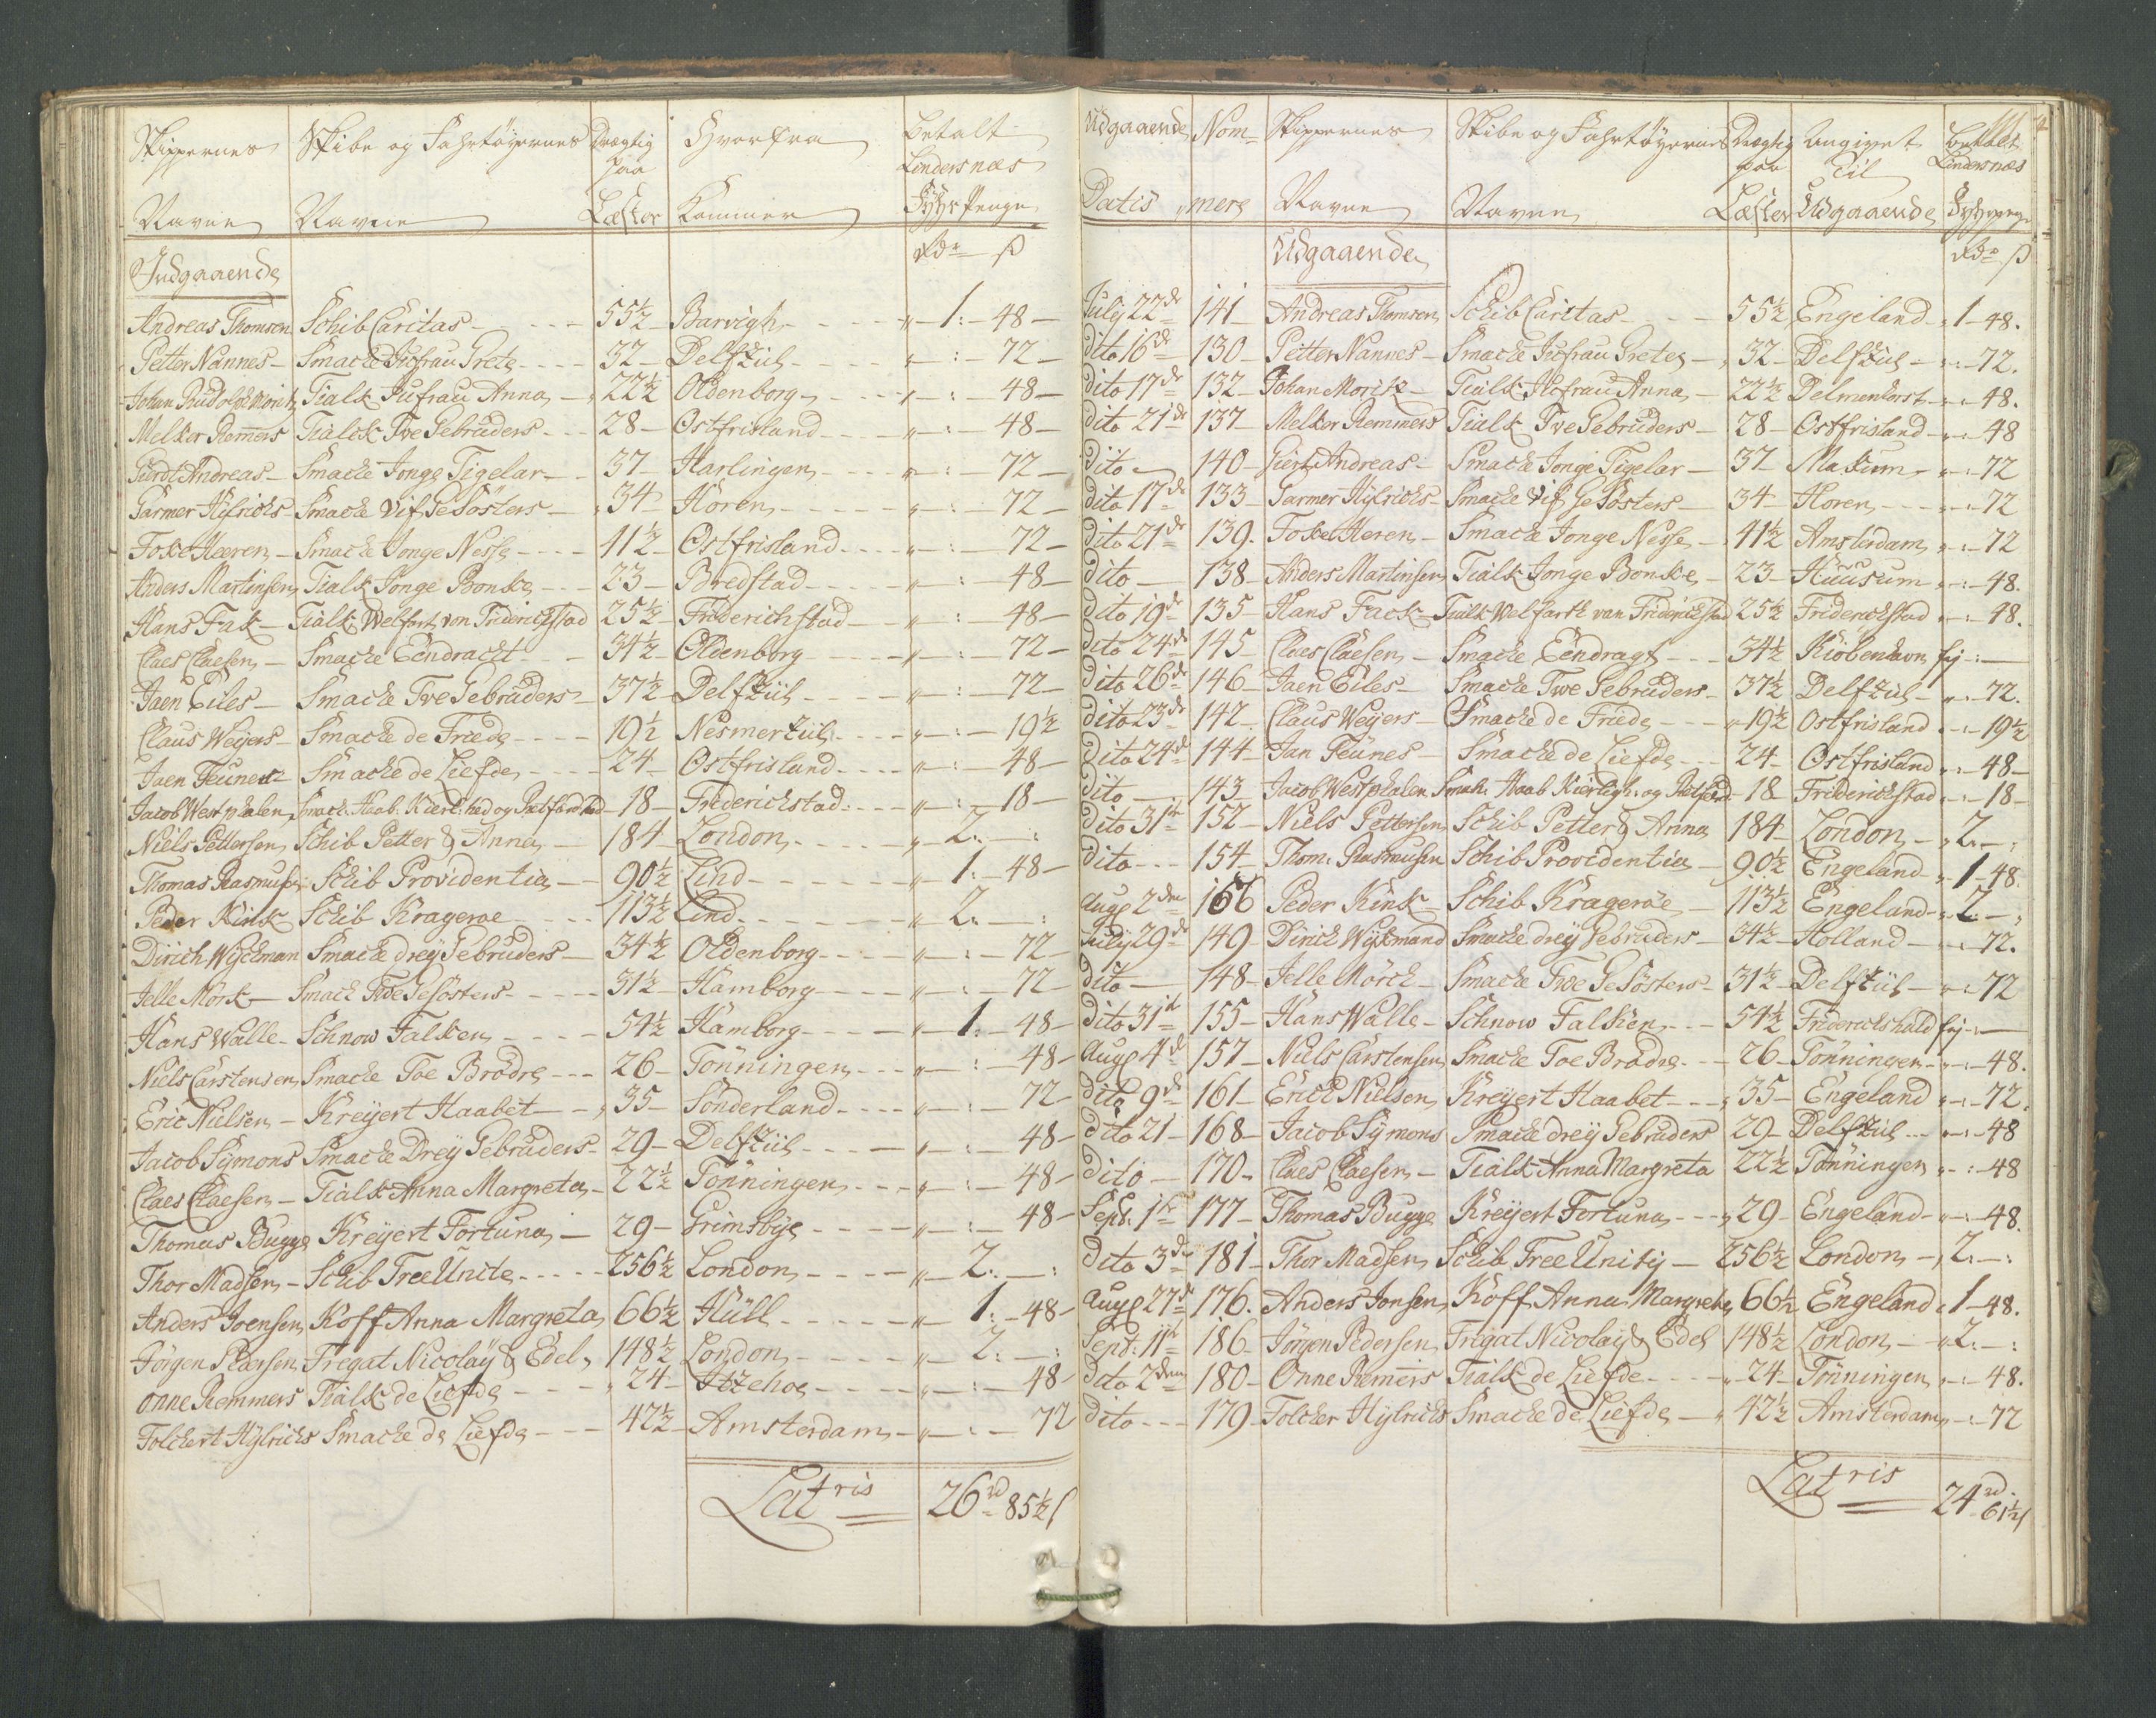 Skippernes Skibe og Fahrtøyernes Drægtig Hvorfra Betalt
paa Lindersnæs
Navne Navne Læster Kommer Fyhr Penge
Rdr ß
Indgaaende
Andreas Thomsen Schib Caritas - 55½ Barvigh - „ - 1: - 48 -
Petter Nannes - Smacke Jufrau Grete - 32 - Delfziil - „ - : - 72 -
Johan Rudolph Moritz Tialk Jufrau Anna - 22½ Oldenborg - „ - : 48 -
Melkor Remmers Tialck Tve Gebrüders - 28 - Ostfrisland - „ - : - 48 -
Geerdt Andreas - Smacke Jonge Tigelar - 37 - Harlingen - „ - : - 72 -
Garmer Hijlrichs - Smacke Vif Gesösters - 34 - Horen - „ - : 72 -
Foke Heeren - Smacke Jonge Nesse - 41½ - Ostfrisland - „ - : - 72 -
Anders Martinsen Tialk Jonge Bonke - 23 - Bredstad - „ - : - 48 -
Hans Fak - Tialk Welfart von Friderichstad 25½ - Friderichstad - „ - : - 48 -
Claes Claesen - Smacke Eendracht - 34½ - Oldenborg - „ - : - 72 -
Jaen Eiles - Smacke Tve Gebrüders - 37½ - Delfziil - „ - : - 72 -
Claus Weijers - Smacke de Friede - 19½ Nesmerziil - „ - : - 19½
Jaen Teunes - Smacke de Liefde - 24 - Ostfrisland - „ - : - 48 -
Jacob Westphalen Smack: Haab: Kierl:hed og Retfærdhed - 18 - Friderichstad - „ - : - 18 -
Niels Pettersen Schib Petter & Anna - 184 - London - „ - 2: - :
Thomas Rasmusen Schib Providentia - 90½ Lind - „ - 1: - 48 -
Peder Kink - Schib Krageroe - 113½ Lind - „ - 2: - :
Dirich Wijckman Smacke dreij Gebrüders - 34½ Oldenborg - „ - : - 72 -
Jelle Mörk - Smack Tve Gesösters - 31½ - Hamborg - „ - : - 72 -
Hans Walle - Schnow Falken - 54½ - Hamborg - „ - 1: - 48 -
Niels Carstensen Smacke Toe Brödre - 26 - Tönningen - „ - : - 48 -
Eric Nielsen - Kreijert Haabet - 35 - Sönderland - „ - : - 72 -
Jacob Sijmons Smacke Dreij Gebrüders - 29 - Delfziil - „ - : 48 -
Claes Claesen - Tialk Anna Margreta - 22½ Tönningen - „ - : - 48 -
Thomas Bugge Kreijert Fortuna - 29 - Grimsbije - „ - : - 48 -
Thor Madsen - Schib Tree Unite - 256½ London - „ - 2: - :
Anders Joensen Koff Anna Margreta 66½ Hüll - „ - 1: - 48 -
Jörgen Pedersen Fregat Nicolaij & Edel 148½ London - „ - 2: - :
Onne Remmers Tialk de Liefde - 24 - Itzehoe - „ - : - 48 -
Folckert Hijlrichs Smacke de Liefde - 42½ - Amsterdam - „ - : - 72
Latris 26rd 85½ß
Udgaaende Nom- Skippernes Skibe og Fahrtøyernes Drægtig Angivet Betalt
paa Til Lindersnæs
Datis mere Navne Navne Læster Udgaaende Fyhrpenge
Rdr ß
Udgaaende
Julij 22de 141 - Andreas Thomsen Schib Caritas - 55½ Engeland - „ 1 - 48.
Dito 16de 130 - Petter Nannes - Smacke Jufrau Grete - 32 - Delfziil - „ : - 72.
Dito 17de 132 - Johan Moritz - Tialk Jufrau Anna - 22½ Delmenhorst - „ : - 48.
Dito 21de 137 - Melkor Remmers Tialk Tve Gebrüders - 28 - Ostfrisland - „ : - 48
Dito - 140 - Giert Andreas - Smacke Jonge Tigelar - 37 - Makum - „ : - 72
Dito 17de 133 - Garmer Hijlrichs - Smacke Vif Gesösters - 34 - Horen - „ : - 72
Dito 21de 139. Fokel Heren - Smacke Jonge Nesse - 41½ Amsterdam - „ : - 72
Dito - 138 - Anders Martinsen Tialk Jonge Bonke - 23 - Huusum - „ : - 48.
Dito 19de 135 - Hans Fack - Tialk Welfarth van Friderichstad 25½ Friderichstad - „ : - 48.
Dito 24de 145 - Claes Claesen - Smacke Eendragt - 34½ Kiöbenhavn frj - : -
Dito 26de 146 - Jaen Eiles - Smacke Twe Gebrüders - 37½ Delfziil - „ : - 72.
Dito 23de 142 - Claus Weijers - Smacke de Friede - 19½ Ostfrisland - : - 19½
Dito 24de 144 - Jan Teunes - Smacke de Liefde - 24 - Ostfrisland - „ : - 48 -
Dito - 143 Jacob Westphalen Smak: Haab Kierligh: og Retfærd: - 18 Friderichstad - „ : - 18 -
Dito 31te 152 - Niels Pettersen Schib Petter & Anna 184 - London - „ 2. - :
Dito - 154 - Thom: Rasmusen Schib Providentia - 90½ Engeland - „ 1 - 48.
Aug: 2den 156 Peder Kink - Schib Krageröe - 113½ Engeland - „ 2. - :
Julij 29de 149 - Dirich Wijkmand Smacke dreij Gebrüders - 34½ - Holland - „ : 72.
Dito - 148 - Jelle Mörck - Smacke Twe Gesösters - 31½ - Delfziil - „ : 72
Dito 31te 155 - Hans Walle - Schnow Falken - 54½ Friderichshald frj - : -
Aug: 4de 157 - Niels Carstensen Smacke Toe Brödre - 26 - Tönningen - „ : - 48.
Dito 9de 161 - Erich Nielsen Kreijert Haabet - 35 - Engeland - „ : - 72.
Dito 21 - 168 - Jacob Sijmons Smacke dreij Gebrüders 29 - Delfziil - „ : - 48
Dito - 170 - Claes Claesen - Tialk Anna Margreta 22½ Tönningen - : - 48
Sept: 1te 177 - Thomas Bugge Kreijert Fortuna - 29 - Engeland - „ : - 48.
Dito 3de 181 - Thor Madsen Schib Tree Unitij - 256½ London - „ 2. - :
Aug: 27de 176. Anders Jonsen Koff Anna Margrete 66½ Engeland „ 1 - 48.
Sept: 11te 186 - Jörgen Pedersen Frigat Nicolaij & Edel 148½ London - „ 2. - :
Dito 2den 180 - Onne Remmers Tialk de Liefde - 24 - Tönningen - „ : - 48.
Dito - 179 - Folcker Hijlrichs Smacke de Liefde - 42½ Amsterdam - „ : - 72
Latris 24rd 61½ß